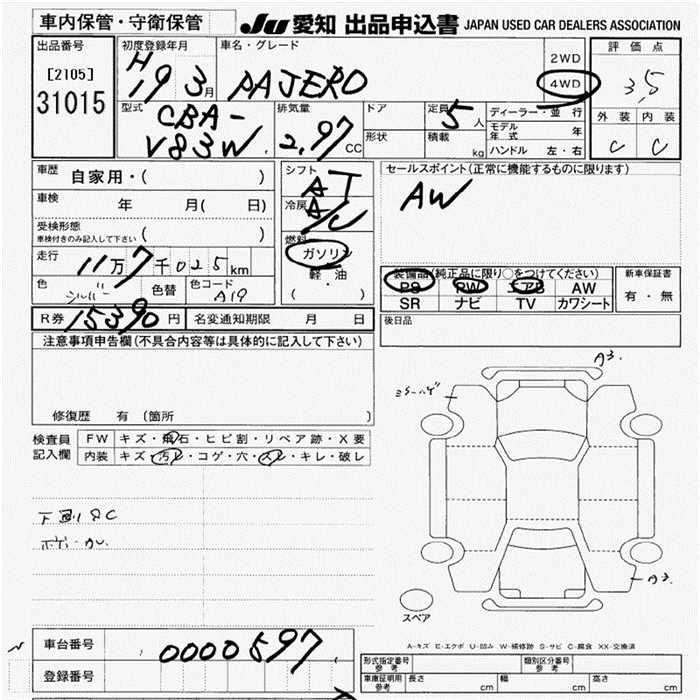 車内保管・守衛保管
JU 愛知 出品申込書 JAPAN USED CAR DEALERS ASSOCIATION
出品番号
[2105]
31015
初度登録年月
H 19 3月
車名・グレード
PAJERO
2WD
4WD
評価点
3,5
外装 内装
C C
型式
CBA-
V83W
排気量
2.97CC
ドア
形状
定員 5人
積載 kg
ディーラー・並行
モデル年式 年
ハンドル 左・右
車歴 自家用・( )
車検 年 月( 日)
受検形態
車検付きのみ記入して下さい ( )
走行 11万7千025km
色 シルバー 色替 色コード A19
シフト AT
冷房 A/C
燃料
ガソリン
軽・油
( )
セールスポイント(正常に機能するものに限ります)
AW
装備品(純正品に限り○をつけてください)
PS PW エアB AW
SR ナビ TV カワシート
新車保証書
有・無
R券 15390円 名変通知期限 月 日
後日品
注意事項申告欄(不具合内容等は具体的に記入して下さい)
修復歴 有 〔箇所
検査員
記入欄
FW キズ・飛石・ヒビ割・リペア跡・X要
内装 キズ・汚レ・コゲ・穴・スレ・キレ・破レ
下廻り
A3.
A3
スペア
A-キズ E-エクボ U-凹み W-補修跡 S-サビ C-腐食 XX-交換済
車台番号 0000597
登録番号
形式指定番号
参考
類別区分番号
参考
車庫証明用
参考
長さ 幅 高さ